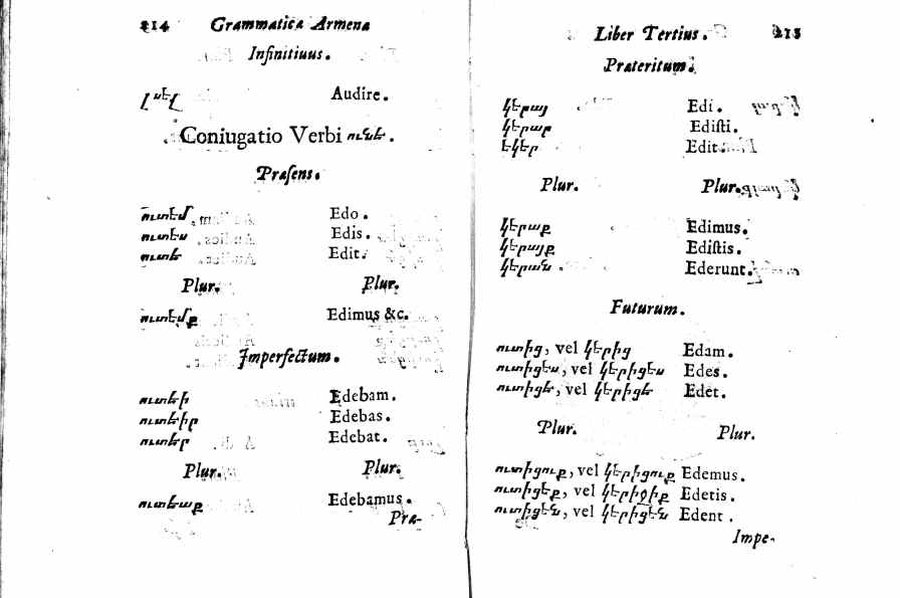 214 Grammatica Armena
Infinitiuus.
լսել Audire.
Coniugatio Verbi ուտե.
Præsens.
ուտեմ Edo.
ուտես Edis.
ուտէ Edit.
Plur. Plur.
ուտեմք Edimus &c.
Imperfectum.
ուտէի Edebam.
ուտէիր Edebas.
ուտէր Edebat.
Plur. Plur.
ուտէաք Edebamus.
Præ-
Liber Tertius. 215
Præteritum.
կերայ Edi.
կերար Edisti.
եկեր Edit.
Plur. Plur.
կերաք Edimus.
կերայք Edistis.
կերան. Ederunt.
Futurum.
ուտից, vel կերից Edam.
ուտիցես, vel կերիցես Edes.
ուտիցէ, vel կերիցէ Edet.
Plur. Plur.
ուտիցուք, vel կերիցուք Edemus.
ուտիցեք, vel կերիջիք Edetis.
ուտիցեն, vel կերիցեն Edent.
Impe-